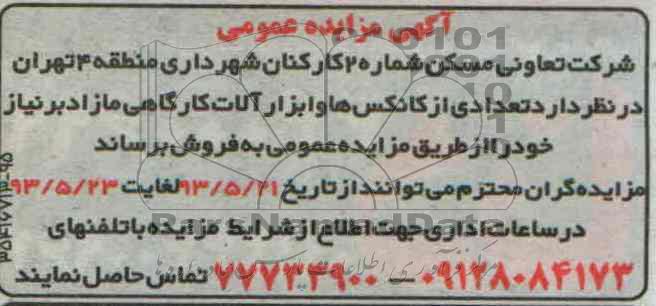 آگهی مزایده عمومی
شرکت تعاونی مسکن شماره ۲ کارکنان شهرداری منطقه ۴ تهران
در نظر دارد تعدادی از کانکس ها و ابزار آلات کارگاهی مازاد بر نیاز
خود را از طریق مزایده عمومی به فروش برساند
مزایده گران محترم می توانند از تاریخ ۹۳/۵/۲۱ لغایت ۹۳/۵/۲۳
در ساعات اداری جهت اطلاع از شرایط مزایده با تلفنهای
۰۹۱۲۸۰۸۴۱۷۳ - ۷۷۷۲۲۹۰۰ تماس حاصل نمایند
ParsNamadData